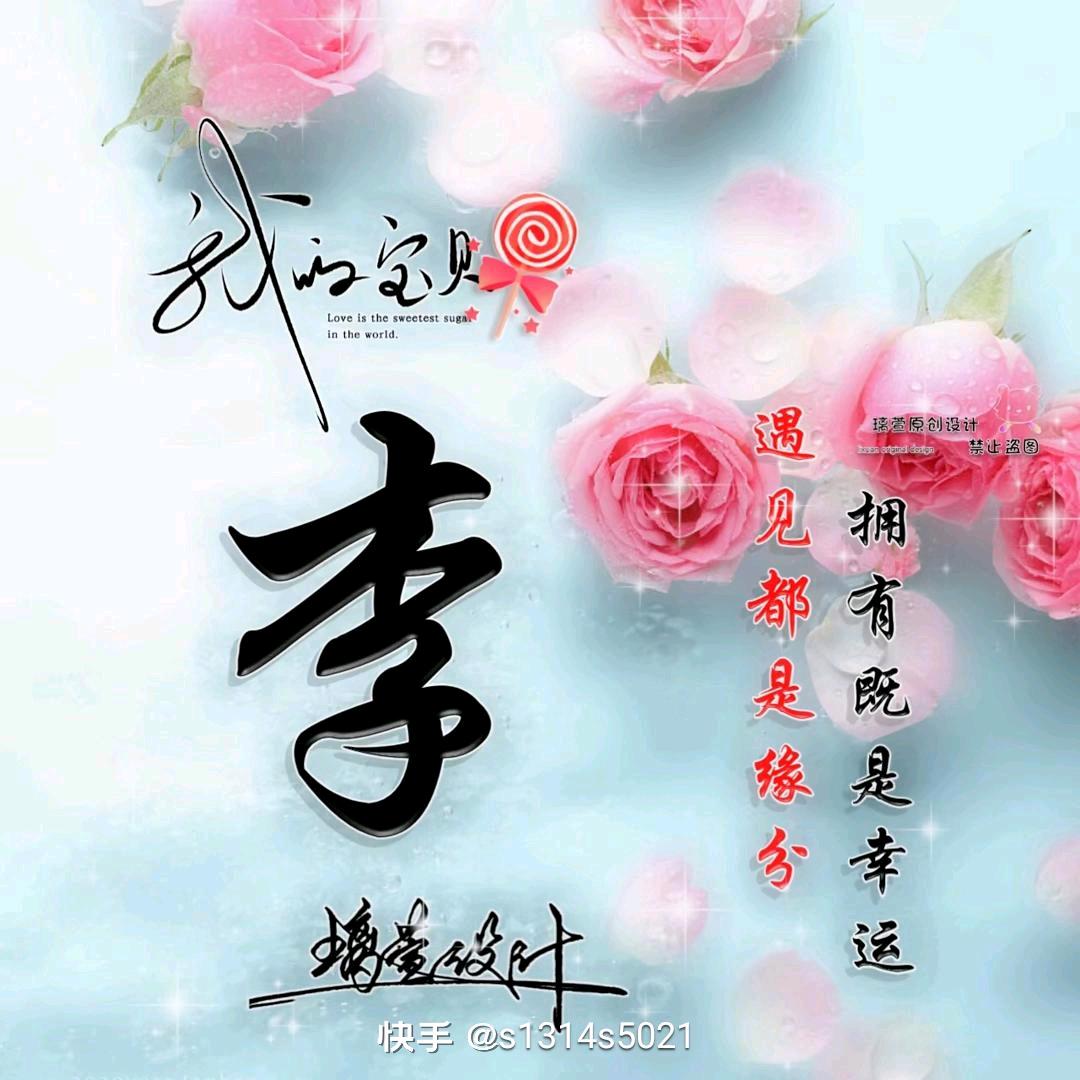 我的宝贝
Love is the sweetest sugar
in the world.
李
遇见都是缘分
拥有既是幸运
璃萱原创设计
lxuan original design
禁止盗图
璃萱设计
快手 @s1314s5021